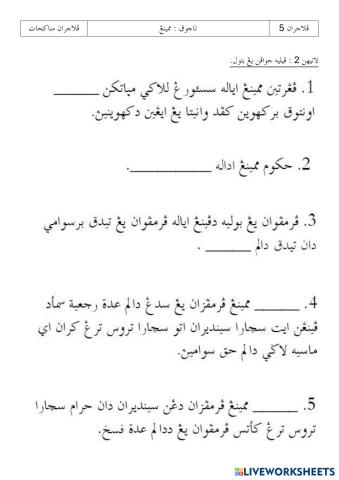 ڤلاجرن 5
تاجوق : ممينڠ
ڤلاجرن مناكحات
لاتيهن 2 : ڤيليه جواڤن يڠ بتول.
1. ڤڠرتين ممينڠ اياله سسئورڠ للاكي مپاتکن ________
اونتوق برکهوين کڤد وانيتا يڠ ايڠين دکهوينين.
2. حکوم ممينڠ اداله ____________.
3. ڤرمڤوان يڠ بوليه دڤينڠ اياله ڤرمڤوان يڠ تيدق برسوامي
دان تيدق دالم ______ .
4. ______ ممينڠ ڤرمڤوان يڠ سدڠ دالم عدة رجعية سمأد
ڤينڠن ايت سچارا سينديرن اتو سچارا تروس ترڠ کران اي
ماسيه لاݢي دالم حق سوامين.
5. ______ ممينڠ ڤرمڤوان دڠن سينديرن دان حرام سچارا
تروس ترڠ کأتس ڤرمڤوان يڠ ددالم عدة فسخ.
LIVEWORKSHEETS